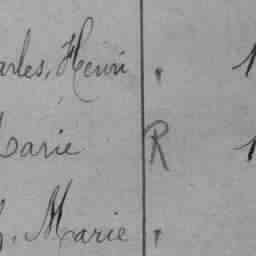 arles, Henri . 1
Marie R 1
h, Marie .